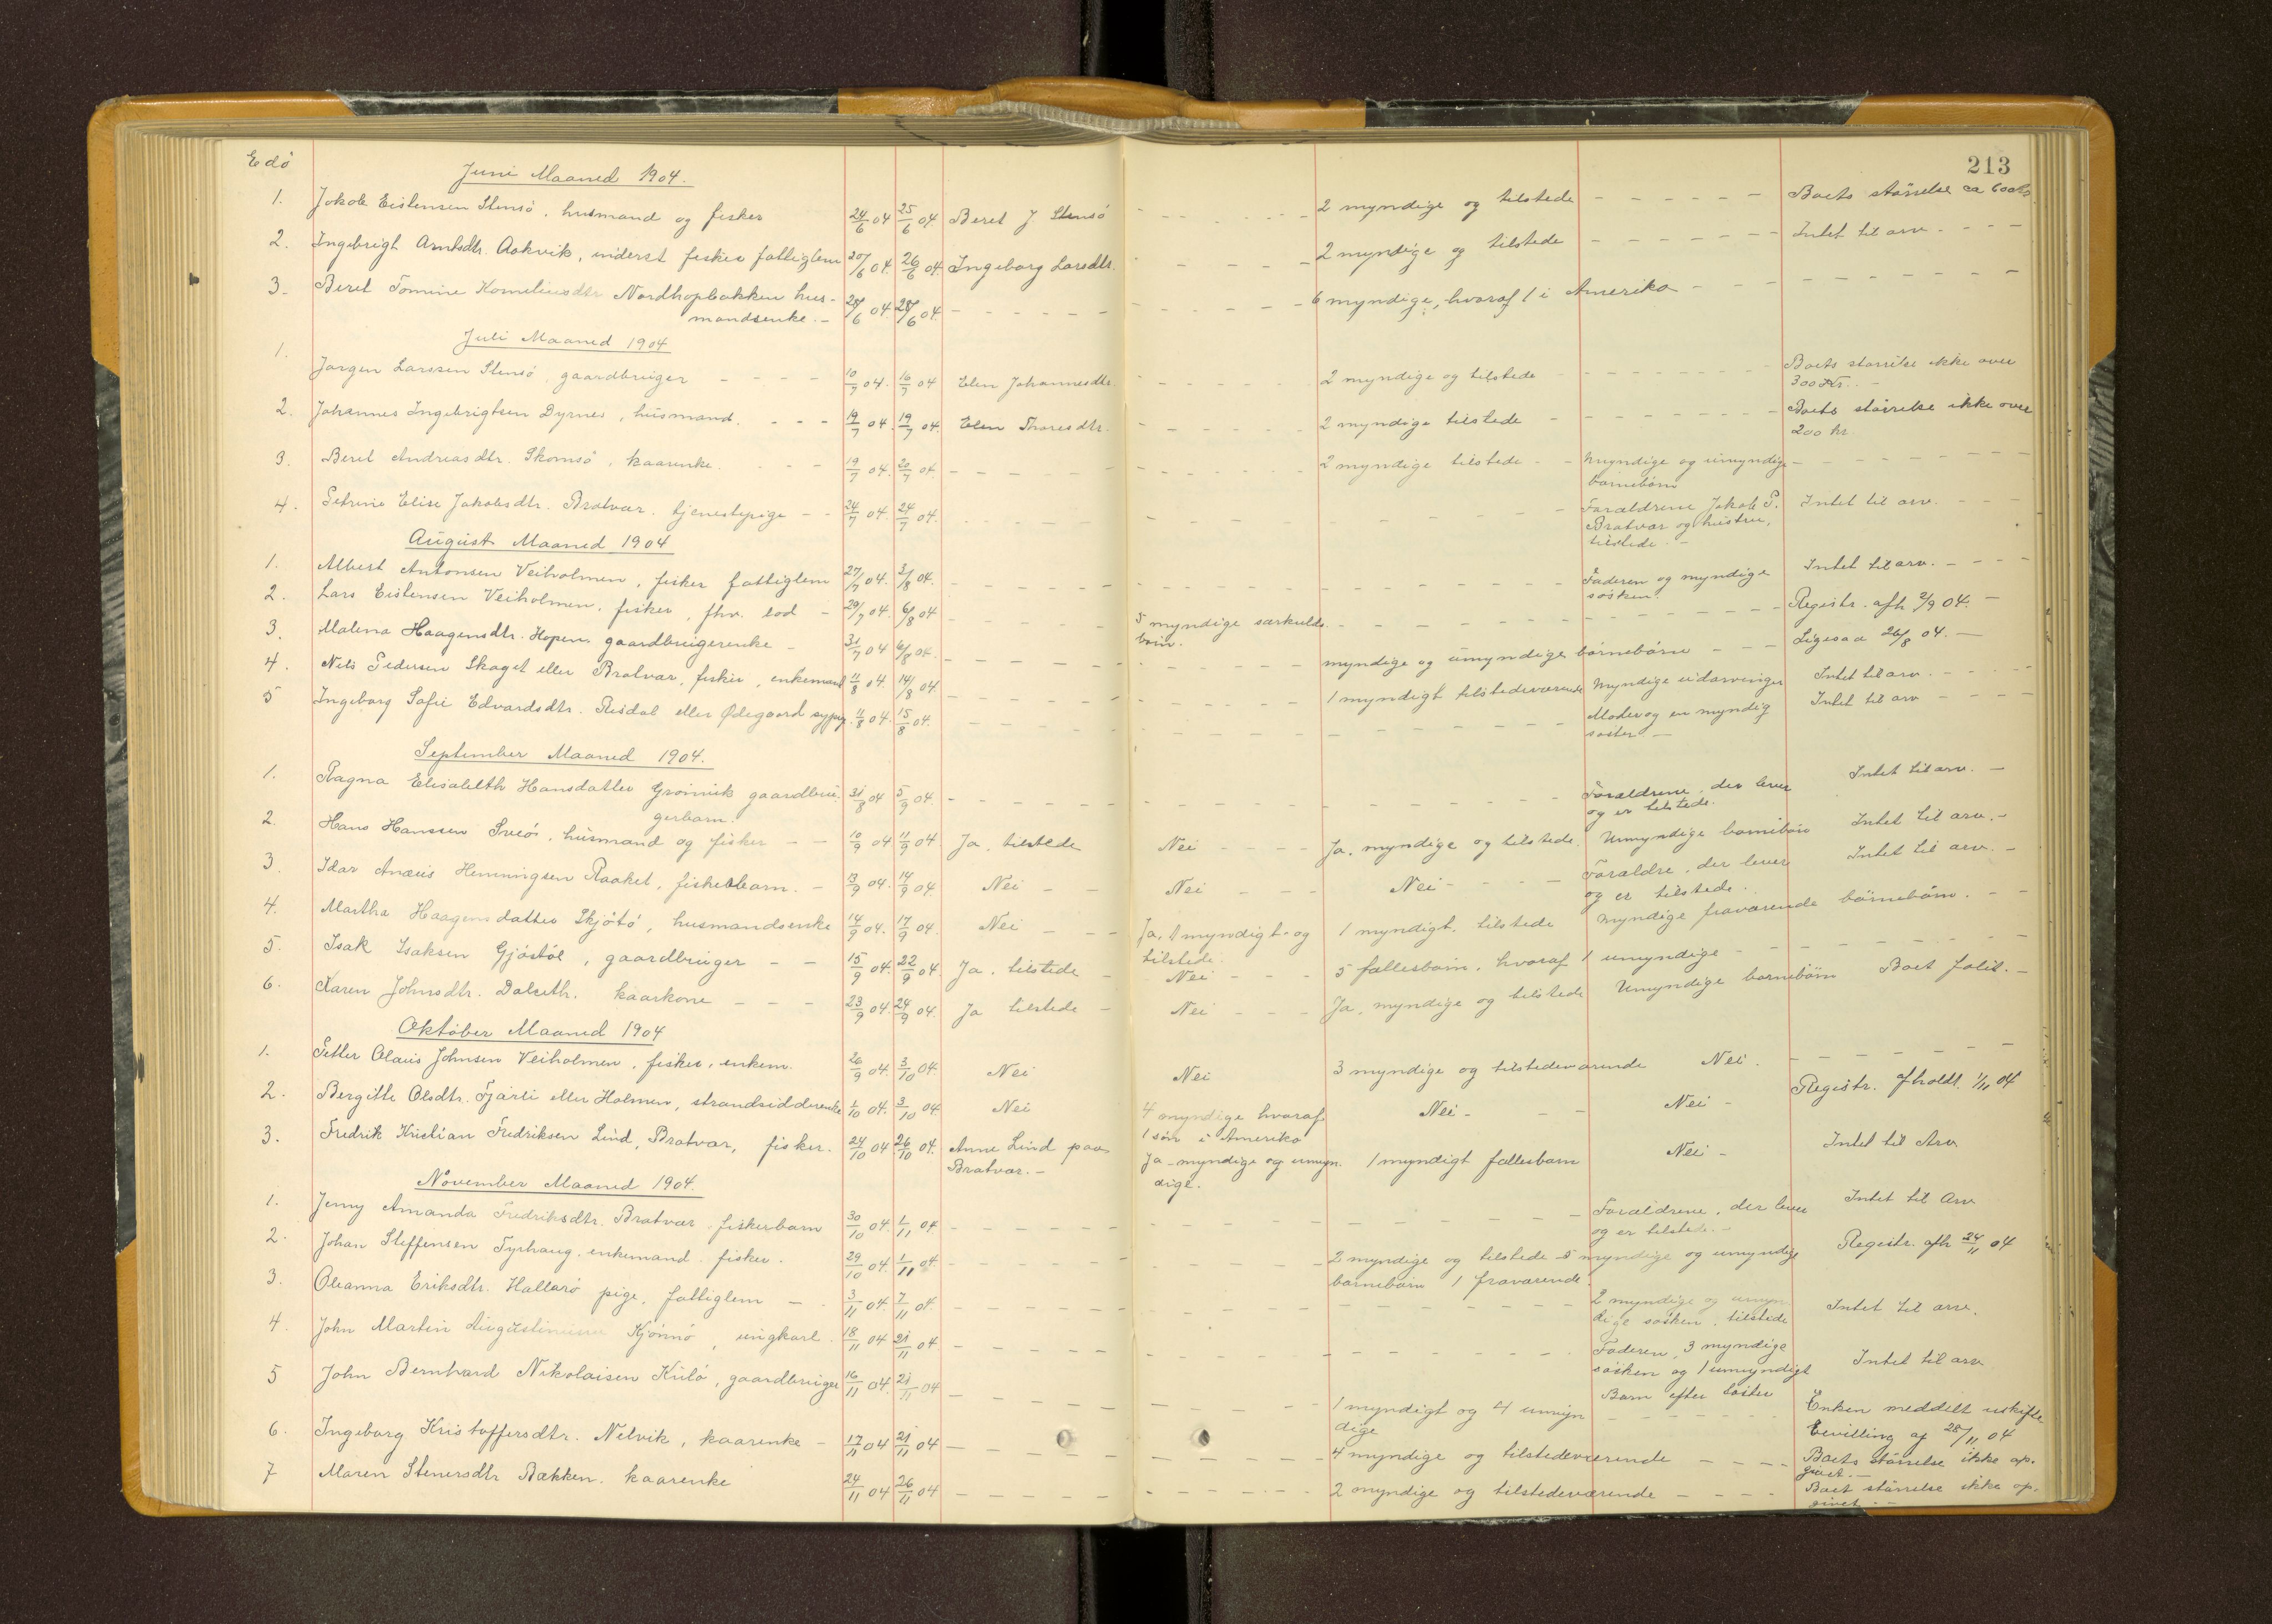 Edö
213
Juni Maaned 1904.
1. Jakob Eistensen Stensö, husmand og fisker 24/6 04 25/6 04. Beret J Stensö - - - 2 myndige og tilstede - - - Boets størrelse ca
2. Ingebrigt Arntsdtr. Aakvik, inderst fisker fattiglem 20/6 04. 26/6 04. Ingeborg Larsdtr. - - - 2 myndige og tilstede - - - Intet til arv. - - -
3. Beret Tomine Korneliusdtr Nordhopbakken hus- 28/6 04. - - - 6 myndige, hvoraf 1 i Amerika - - -
mandsenke. -
Juli Maaned 1904
1. Jørgen Larssen Stensö, gaardbruger - - - 10/7 04. 16/7 04 Elen Johannesdtr. - - - 2 myndige og tilstede - - - Boets størrelse ikke over
300 Kr. -
2. Johannes Ingebrigtsen Dyrnes, husmand. - - - 04. 19/7 04. Elen Thoresdtr. - - - 2 myndige tilstede - - - Boets størrelse ikke over
200 kr
3. Beret Andreasdtr. Skomsö, kaarenke. - - 19/7 04. 20/7 04 - - - 2 myndige tilstede - - myndige og umyndige - - -
barnebörn
4. Petrine Elise Jakobsdtr. Bratvær. tjenestepige - - 24/7 04. 24/7 04. - - - Forældrene Jakob P. Intet til arv. - - -
Bratvær og hustru,
tilstede. -
August Maaned 1904
1. Albert Antonsen Veiholmen, fisker fattiglem 27/7 04. 3/8 04. - - - Faderen og myndige Intet til arv. - - -
søsken.
2. Lars Eistensen Veiholmen, fisker, fhv. lod - 29/7 04. 6/8 04 - - - 5 myndige særkulds - - - Registr. afh 2/9 04. -
börn.
3. Malena Haagensdtr. Hopen. gaardbrugerenke - 31/7 04 6/8 04. - - - myndige og umyndige börnebörn - - - Ligesaa 26/8 04. -
4. Nils Pedersen Skaget eller Bratvær, fisker, enkemand 11/8 04. 14/8 04. - - - 1 myndigt tilstedeværende Myndige udarvinger Intet til arv. - -
5 Ingeborg Sofie Edvardsdtr. Risdal eller Ødegaard sypig. 11/8 04. 15/8 04. - - - Moder og en myndig Intet til arv - - -
søster -
September Maaned 1904.
1. Ragna Elisabeth Hansdatter Grönnvik gaardbru- 31/8 04 5/9 04. - - - Forældrene, der lever Intet til arv. -
gerbarn. og er tilstede.
2. Hans Hanssen Sveö, husmand og fisker - - 10/9 04 11/9 04. Ja, tilstede Nei - - - Ja, myndige og tilstede. Umyndige barnebörn Intet til arv. -
3. Idar Anæus Henningsen Raaket, fiskerbarn. - 13/9 04. 14/9 04 Nei - - Nei - - - Nei - - - Forældre, der lever Intet til arv. -
og er tilstede.
4. Martha Haagensdatter Skjötö, husmandsenke 14/9 04. 17/9 04. Nei - - - Ja, 1 myndigt og 1 myndigt. tilstede myndige fraværende börnebörn. - -
tilstede.
5. Isak Isaksen Gjöstöl, gaardbruger - - 15/9 04. 22/9 04. Ja, tilstede - Nei - - - 5 fællesbörn, hvoraf 1 umyndige - - -
6. Karen Johnsdtr. Dalseth. kaarkone - - - 23/9 04. 24/9 04. Ja tilstede - Nei - - - Ja, myndige og tilstede Umyndige barnebörn Boet falit. -
Oktober Maaned 1904
1. Petter Olaus Johnsen Veiholmen, fisker, enkem. 26/9 04. 3/10 04. Nei Nei 3 myndige og tilstedeværende Nei. - - -
2. Bergitte Olsdtr. Fjærli eller Holmen, strandsidderenke 1/10 04. 3/10 04. Nei 4 myndige hvoraf Nei - - - Nei - Registr. afholdt 1/11 04
1 sön i Amerika
3. Fredrik Kristian Fredriksen Lind, Bratvær, fisker. 24/10 04 26/10 04. Anne Lind paa Ja - myndige og umyn- 1 myndigt fællesbarn Nei - Intet til Arv
Bratvær. - dige.
November Maaned 1904.
1. Jenny Amanda Fredriksdtr. Bratvær, fiskerbarn 30/10 04 1/11 04. - - - Forældrene, der lever Intet til Arv
og er tilstede. -
2. Johan Steffensen Tyrhaug. enkemand. fisker. 29/10 04. 1/11 04. - - - 2 myndige og tilstede - 5 myndige og umyndige Registr. afh 24/11 04
barnebörn 1 fraværende.
3. Oleanna Eriksdtr. Hallarö pige, fattiglem - - 3/11 04. 7/11 04. - - - 2 myndige og umyn- Intet til arv.
dige søsken, tilstede
4. John Martin Augustinius Kjönnö, ungkarl. 18/11 04 21/11 04. - - - Faderen, 3 myndige Intet til arv
søsken og 1 umyndigt
Barn efter søster
5 John Bernhard Nikolaisen Kulö, gaardbruger 16/11 04. 21/11 04 - - - 1 myndigt og 4 umyn - - - Enken meddelt uskifte
dige Bevilling af 28/11 04
6. Ingeborg Kristoffersdtr. Nelvik, kaarenke - 17/11 04 21/11 04 - - - 4 myndige og tilstedeværende - - - Boets størrelse ikke op-
givet. -
7 Maren Stenersdtr Bækken. kaarenke 24/11 04 26/11 04 - - - 2 myndige og tilstedeværende - - - Boet størrelse ikke op-
givet - -